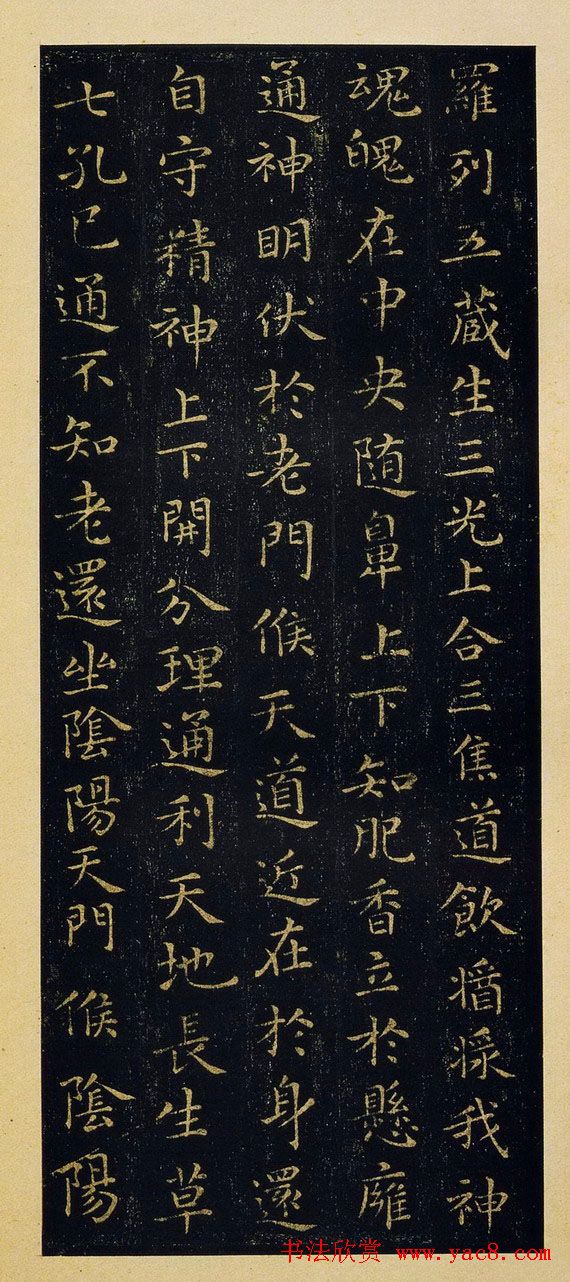 羅列五蔵生三光上合三焦道飲㿂㵗我神
魂魄在中央随鼻上下知肥香立於懸廱
通神明伏於老門候天道近在於身還
自守精神上下開分理通利天地長生草
七孔已通不知老還坐陰陽天門候陰陽
书法欣赏 www.yac8.com